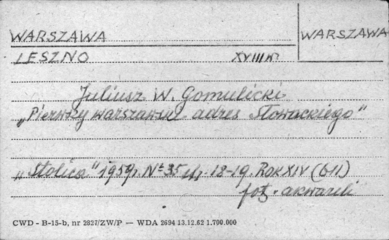 WARSZAWA WARSZAWA
LESZNO XVIII w
Juliusz W. Gomulicki
„Pierwszy warszawski adres Słowackiego"
„Stolica" 1959r. Nr 35 str. 18-19. Rok XIV (611)
fot. akwareli
CWD - B-15-b, nr 2827/ZW/P — WDA 2694 13.12.62 1.700.000